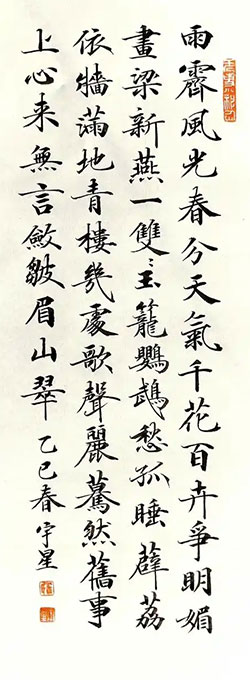 雨霽風光春分天氣千花百卉爭明媚
畫梁新燕一雙々玉籠鸚鵡愁孤睡薜荔
依牆滿地青樓幾處歌聲麗驀然舊事
上心来無言斂皺眉山翠 乙巳春宇星